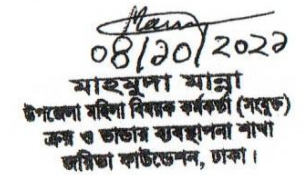 ০৪/১০/২০২২
মাহমুদা মান্না
উপজেলা মহিলা বিষয়ক কর্মকর্তা (সংযুক্ত)
ক্রয় ও ভান্ডার ব্যবস্থাপনা শাখা
জয়িতা ফাউন্ডেশন, ঢাকা।